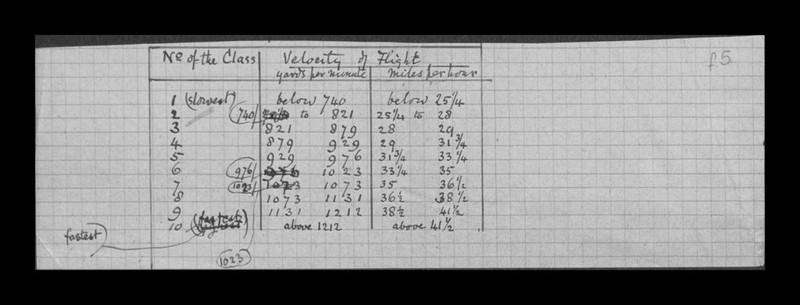 f5
No of the Class Velocity of Flight
yards per minute miles per hour
1 (slowest) below 740 below 25 1/4
2 740 to 821 25 1/4 to 28
3 821 879 28 29
4 879 929 29 31 3/4
5 929 976 31 3/4 33 1/4
6 976 1023 33 1/4 35
7 1023 1073 35 36 1/2
8 1073 1131 36 1/2 38 1/2
9 1131 1212 38 1/2 41 1/2
10 above 1212 above 41 1/2
fastest
1023